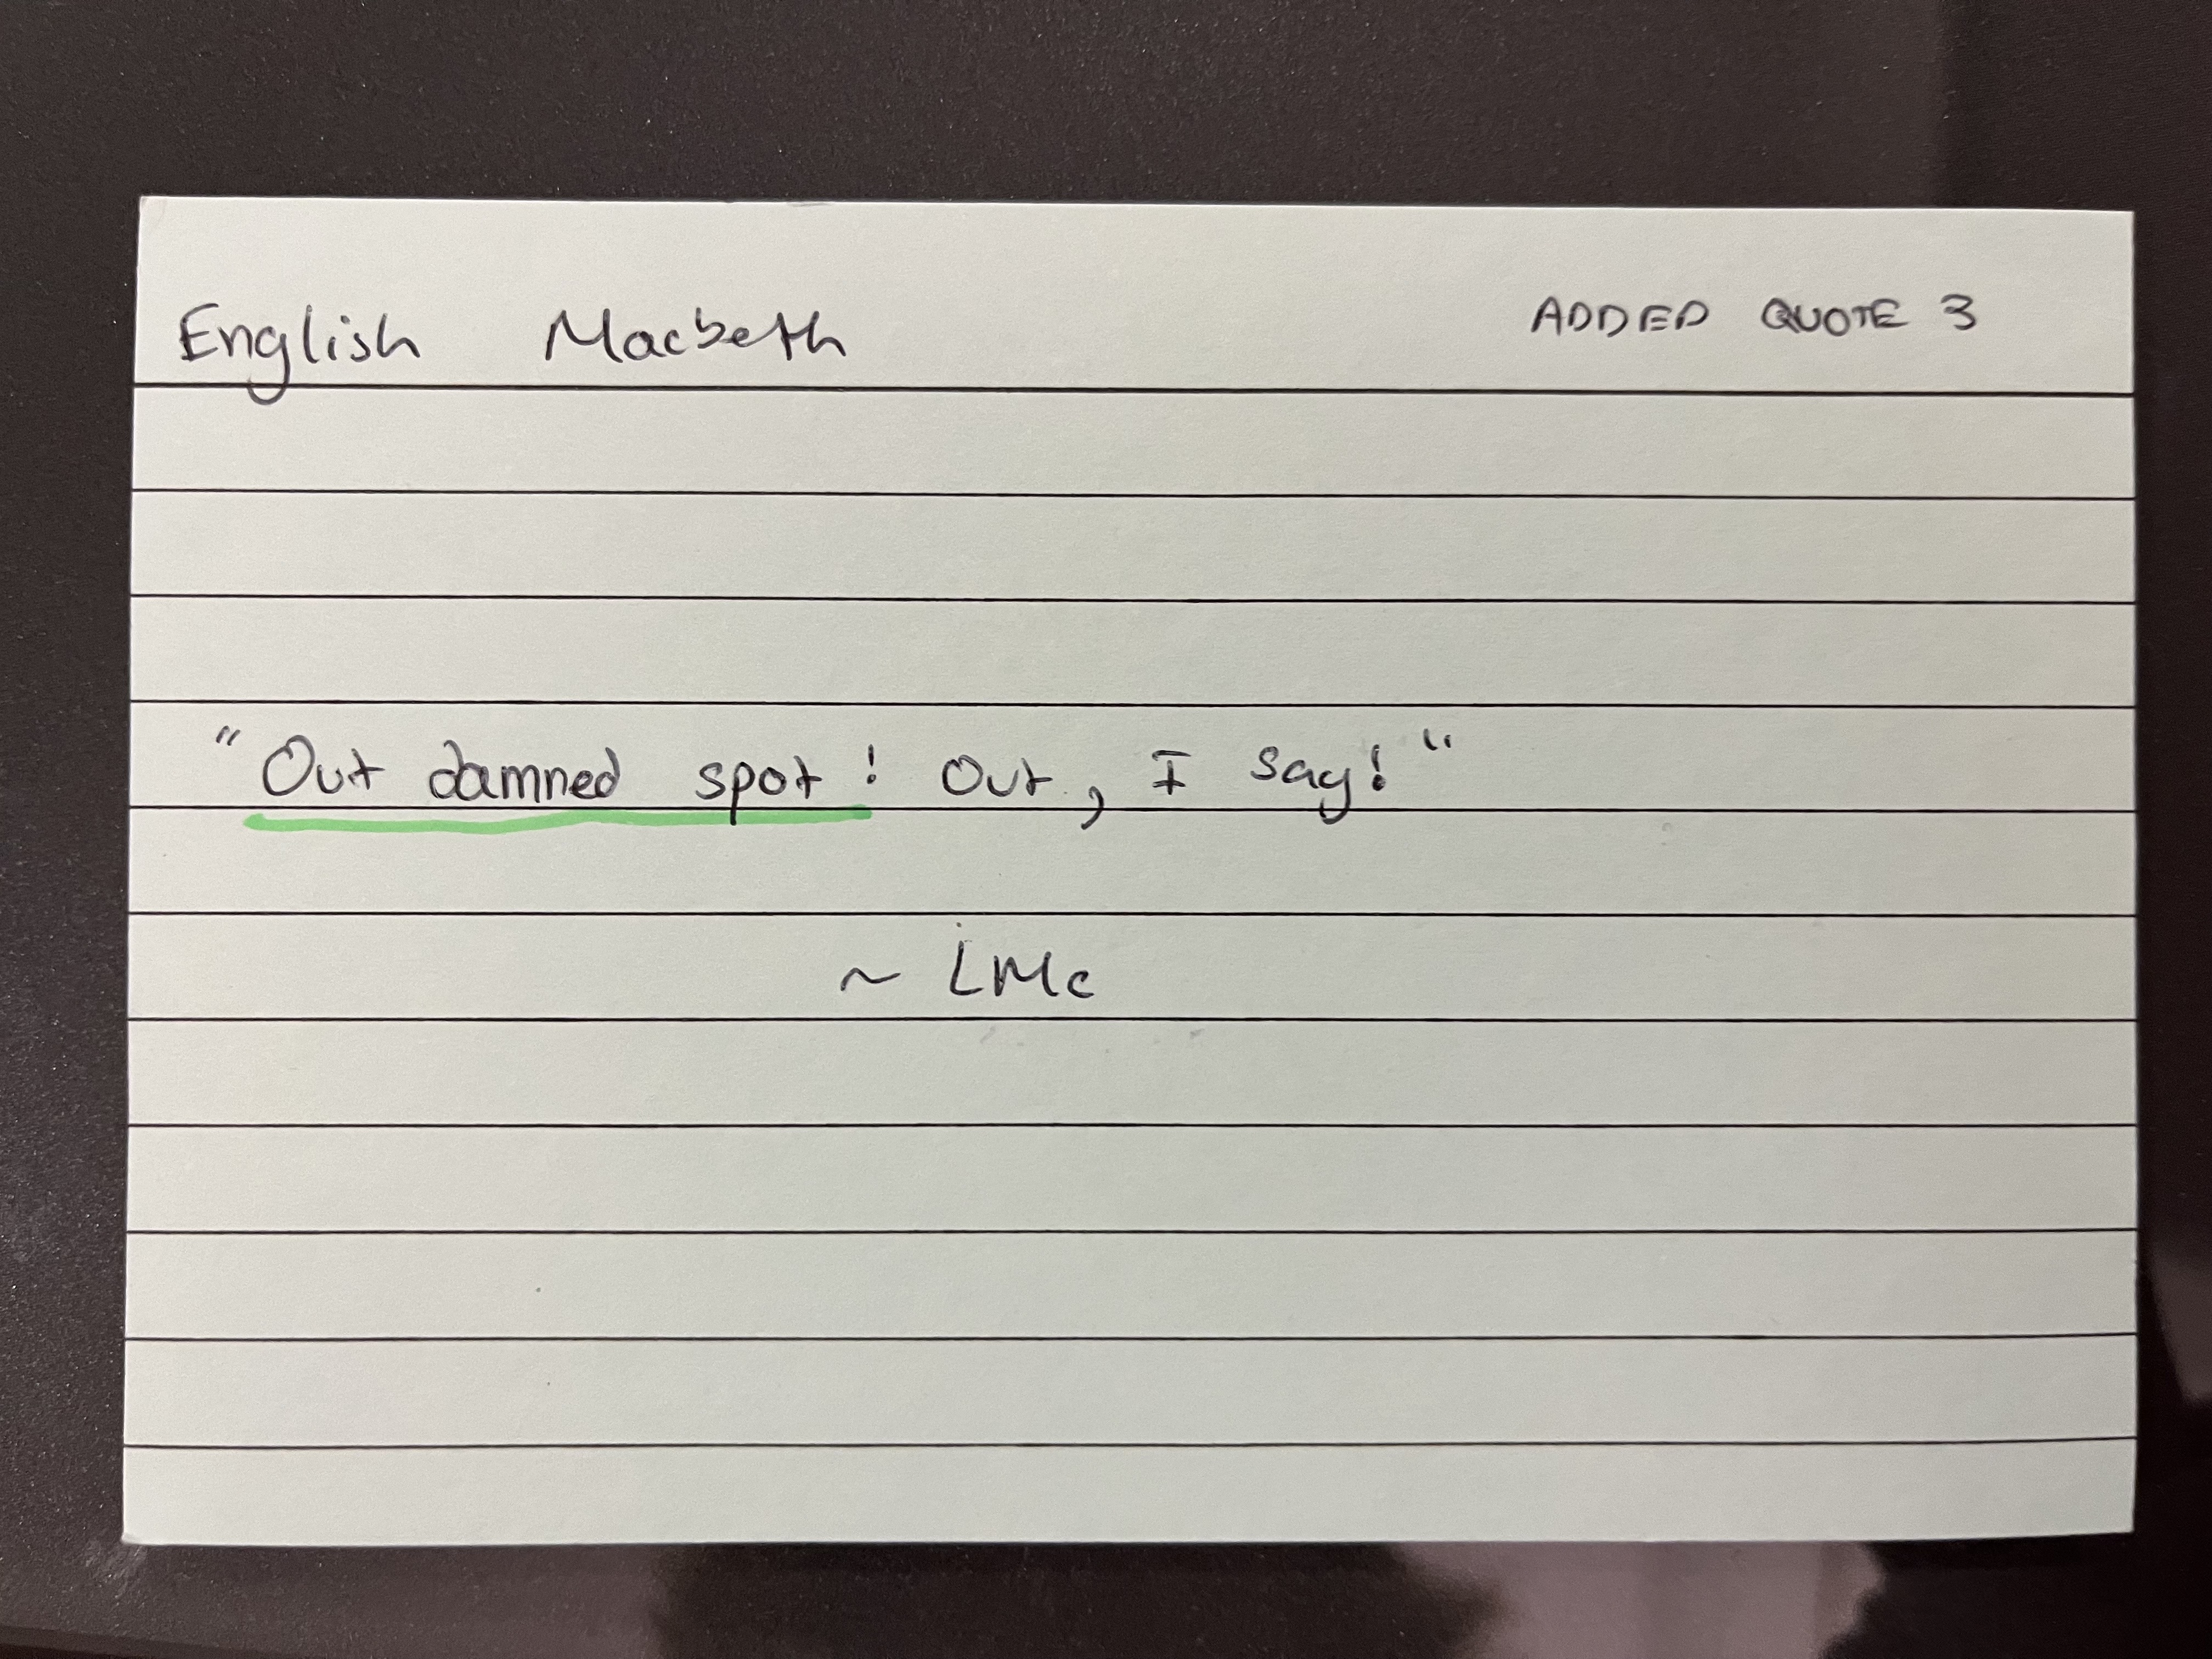 English Macbeth ADDED QUOTE 3
"Out damned spot! Out, I say!"
~ LMc